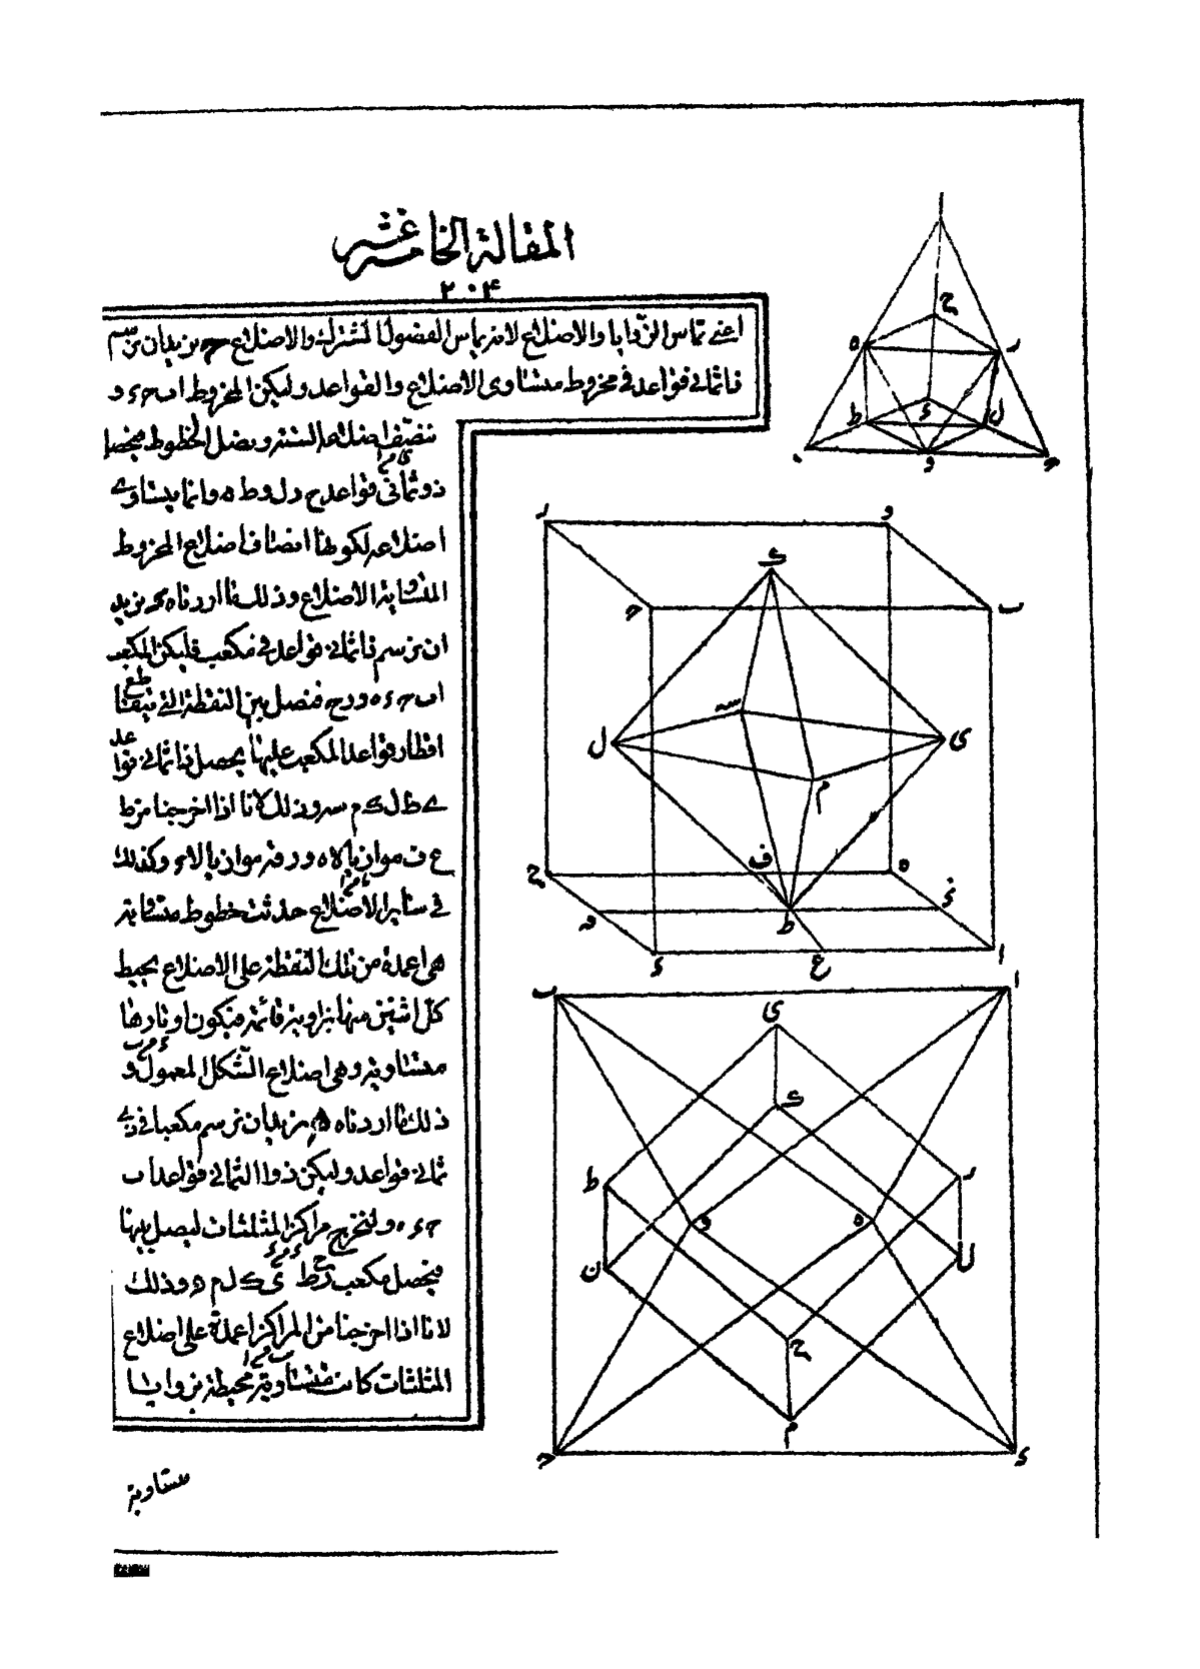 المقالة الخامسة عشر
٢٠٤
اعنى تماس الزوايا والاضلاع لا تماس الفصول المشتركة والاضلاع ح نريدان نرسم
ذا ثمانى قواعد فى مخروط متساوى الاضلاع والقواعد وليكن المخروط اب ح ء و
ننصف اضلاعه الستة ونصل الخطوط فيحصل
ذو ثمانى قواعد ح ر ل و ط ه وانما يتساوى
اضلاعه لكونها انصاف اضلاع المخروط
المتساوية الاضلاع وذلك ما اردناه نريد
ان نرسم ذا ثمانى قواعد فى مكعب فليكن المكعب
اب ح ء ه و ر ح فنصل بين النقطة التى يتقاطع
اقطار قواعد المكعب عليها يحصل ذا ثمانى قواعد
ى ط ل ك م س وذلك لانا اذا اخرجنا من ط
ع ف موازيا لا ه و موازيا لا ء وكذلك
فى سائر الاضلاع حدثت خطوط متساوية
هى اعمدة من تلك النقطة على الاضلاع يحيط
كل اثنين منها بزاوية قائمة فيكون اوتارها
متساوية وهى اضلاع الشكل المعمول و
ذلك ما اردناه ه نريد ان نرسم مكعبا فى ذى
ثمانى قواعد وليكن ذو الثمانى قواعد اب
ح ء ه و لنخرج مراكز المثلثات ليصل بينها
فيحصل مكعب ر ح ط ى ك ل م ن وذلك
لانا اذا اخرجنا من المراكز اعمدة على اضلاع
المثلثات كانت متساوية محيطة بزوايا
متساوية
ا
ح
ه
ر
ط
ء
ل
ب
و
ح
ر
و
ك
ح
ب
س
ل
ى
م
ف
ح
ه
ط
ء
ع
ا
ب
ا
ى
ك
ط
ر
و
ه
ن
ل
ح
م
ح
ء